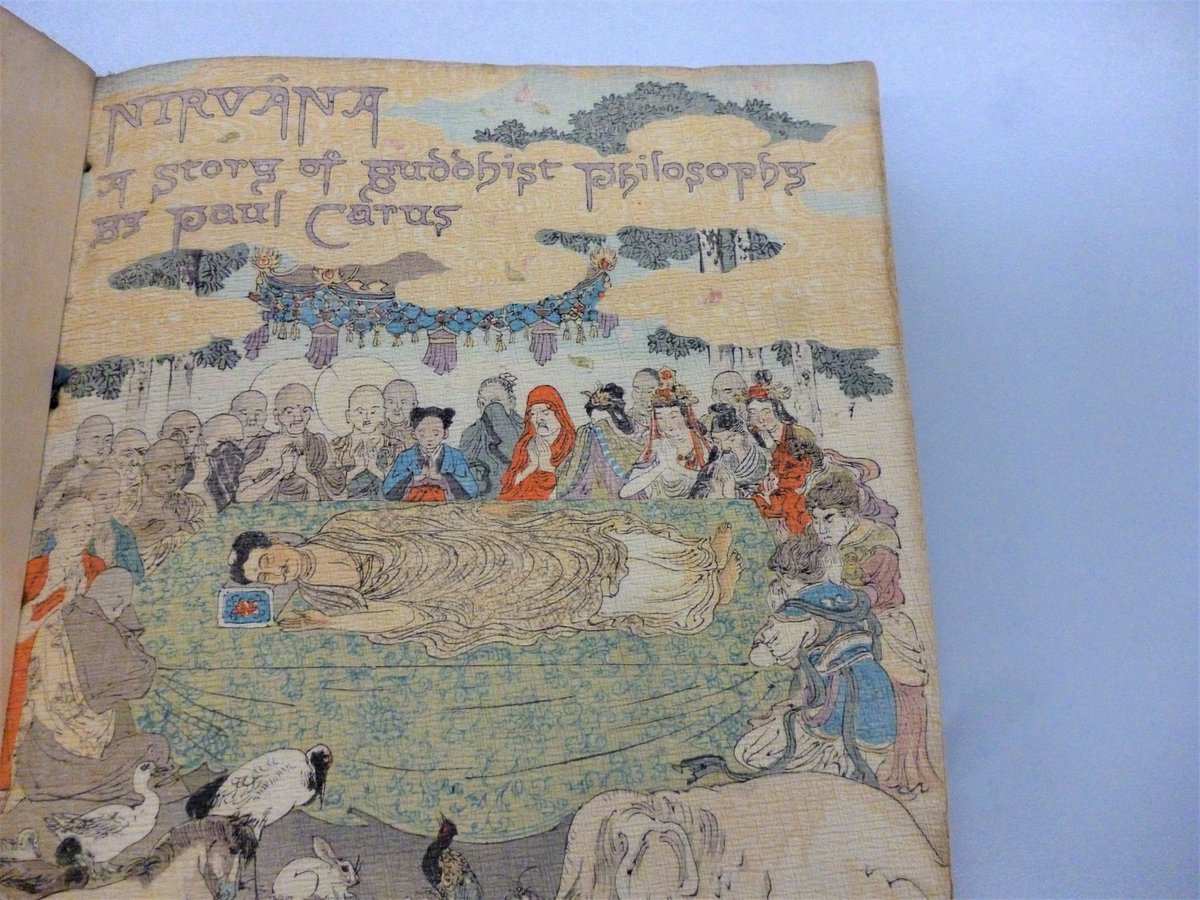 NIRVÂNA
A Story of Buddhist Philosophy
By Paul Carus